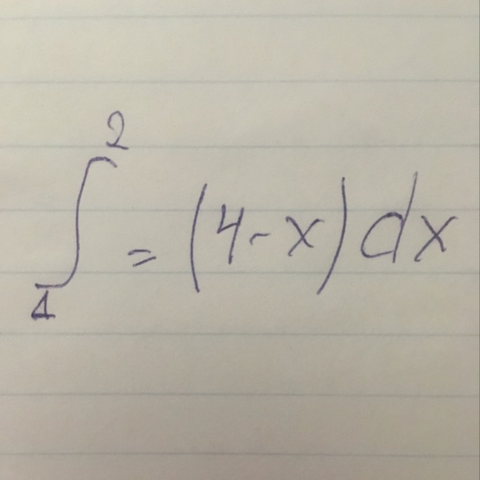 ∫₁² = (4-x) dx